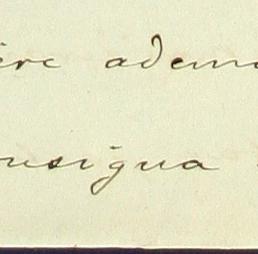 ere adem
onsigna